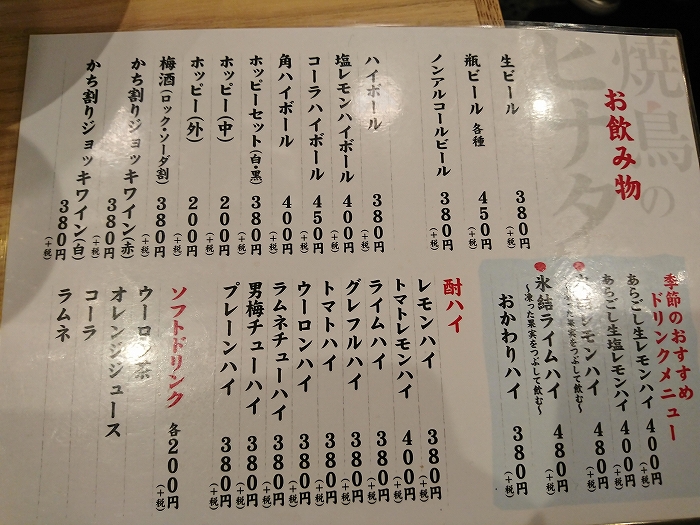 焼鳥の
ヒナタ
お飲み物
生ビール 380円(+税)
瓶ビール 各種 450円(+税)
ノンアルコールビール 380円(+税)
ハイボール 380円(+税)
塩レモンハイボール 400円(+税)
コーラハイボール 450円(+税)
角ハイボール 400円(+税)
ホッピーセット(白・黒) 380円(+税)
ホッピー(中) 200円(+税)
ホッピー(外) 200円(+税)
梅酒(ロック・ソーダ割) 380円(+税)
かち割りジョッキワイン(赤) 380円(+税)
かち割りジョッキワイン(白) 380円(+税)
季節のおすすめ
ドリンクメニュー
あらごし生レモンハイ 400円(+税)
あらごし生塩レモンハイ 400円(+税)
レモンハイ 480円(+税)
~凍った果実をつぶして飲む~
氷結ライムハイ 480円(+税)
~凍った果実をつぶして飲む~
おかわりハイ 380円(+税)
酎ハイ
レモンハイ 380円(+税)
トマトレモンハイ 400円(+税)
ライムハイ 380円(+税)
グレフルハイ 380円(+税)
トマトハイ 380円(+税)
ウーロンハイ 380円(+税)
ラムネチューハイ 380円(+税)
男梅チューハイ 380円(+税)
プレーンハイ 380円(+税)
ソフトドリンク 各200円(+税)
ウーロン茶
オレンジジュース
コーラ
ラムネ